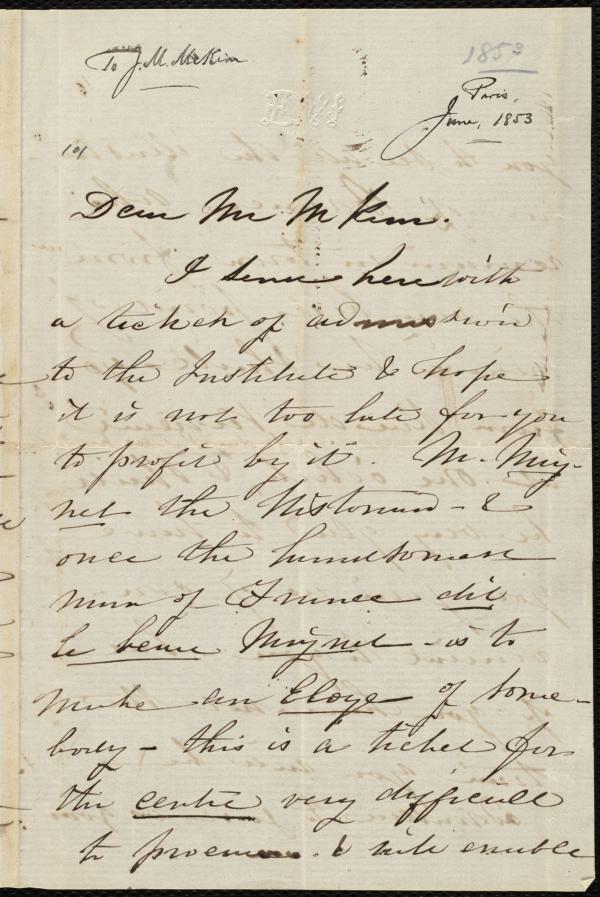 To J. M. McKim
1853
Paris,
June, 1853
Dear Mr McKim.
I send herewith
a ticket of admission
to the Institute & hope
it is not too late for you
to profit by it. M. Mig-
net the Historian - &
once the handsomest
man of France dit
le beau Mignet - is to
make an Eloge of some-
body - this is a ticket for
the centre very difficult
to procure. & will enable